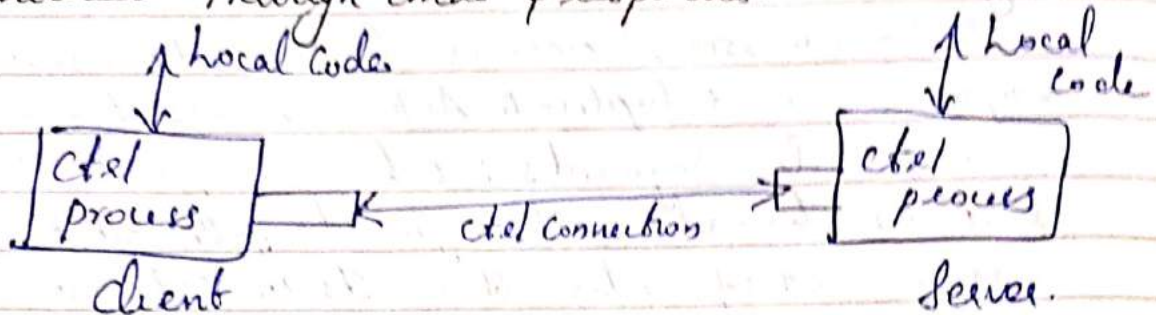 through
Local Code.
Local
Code
Ctrl
process
Ctrl Connection
Ctrl
process
Client
Server.